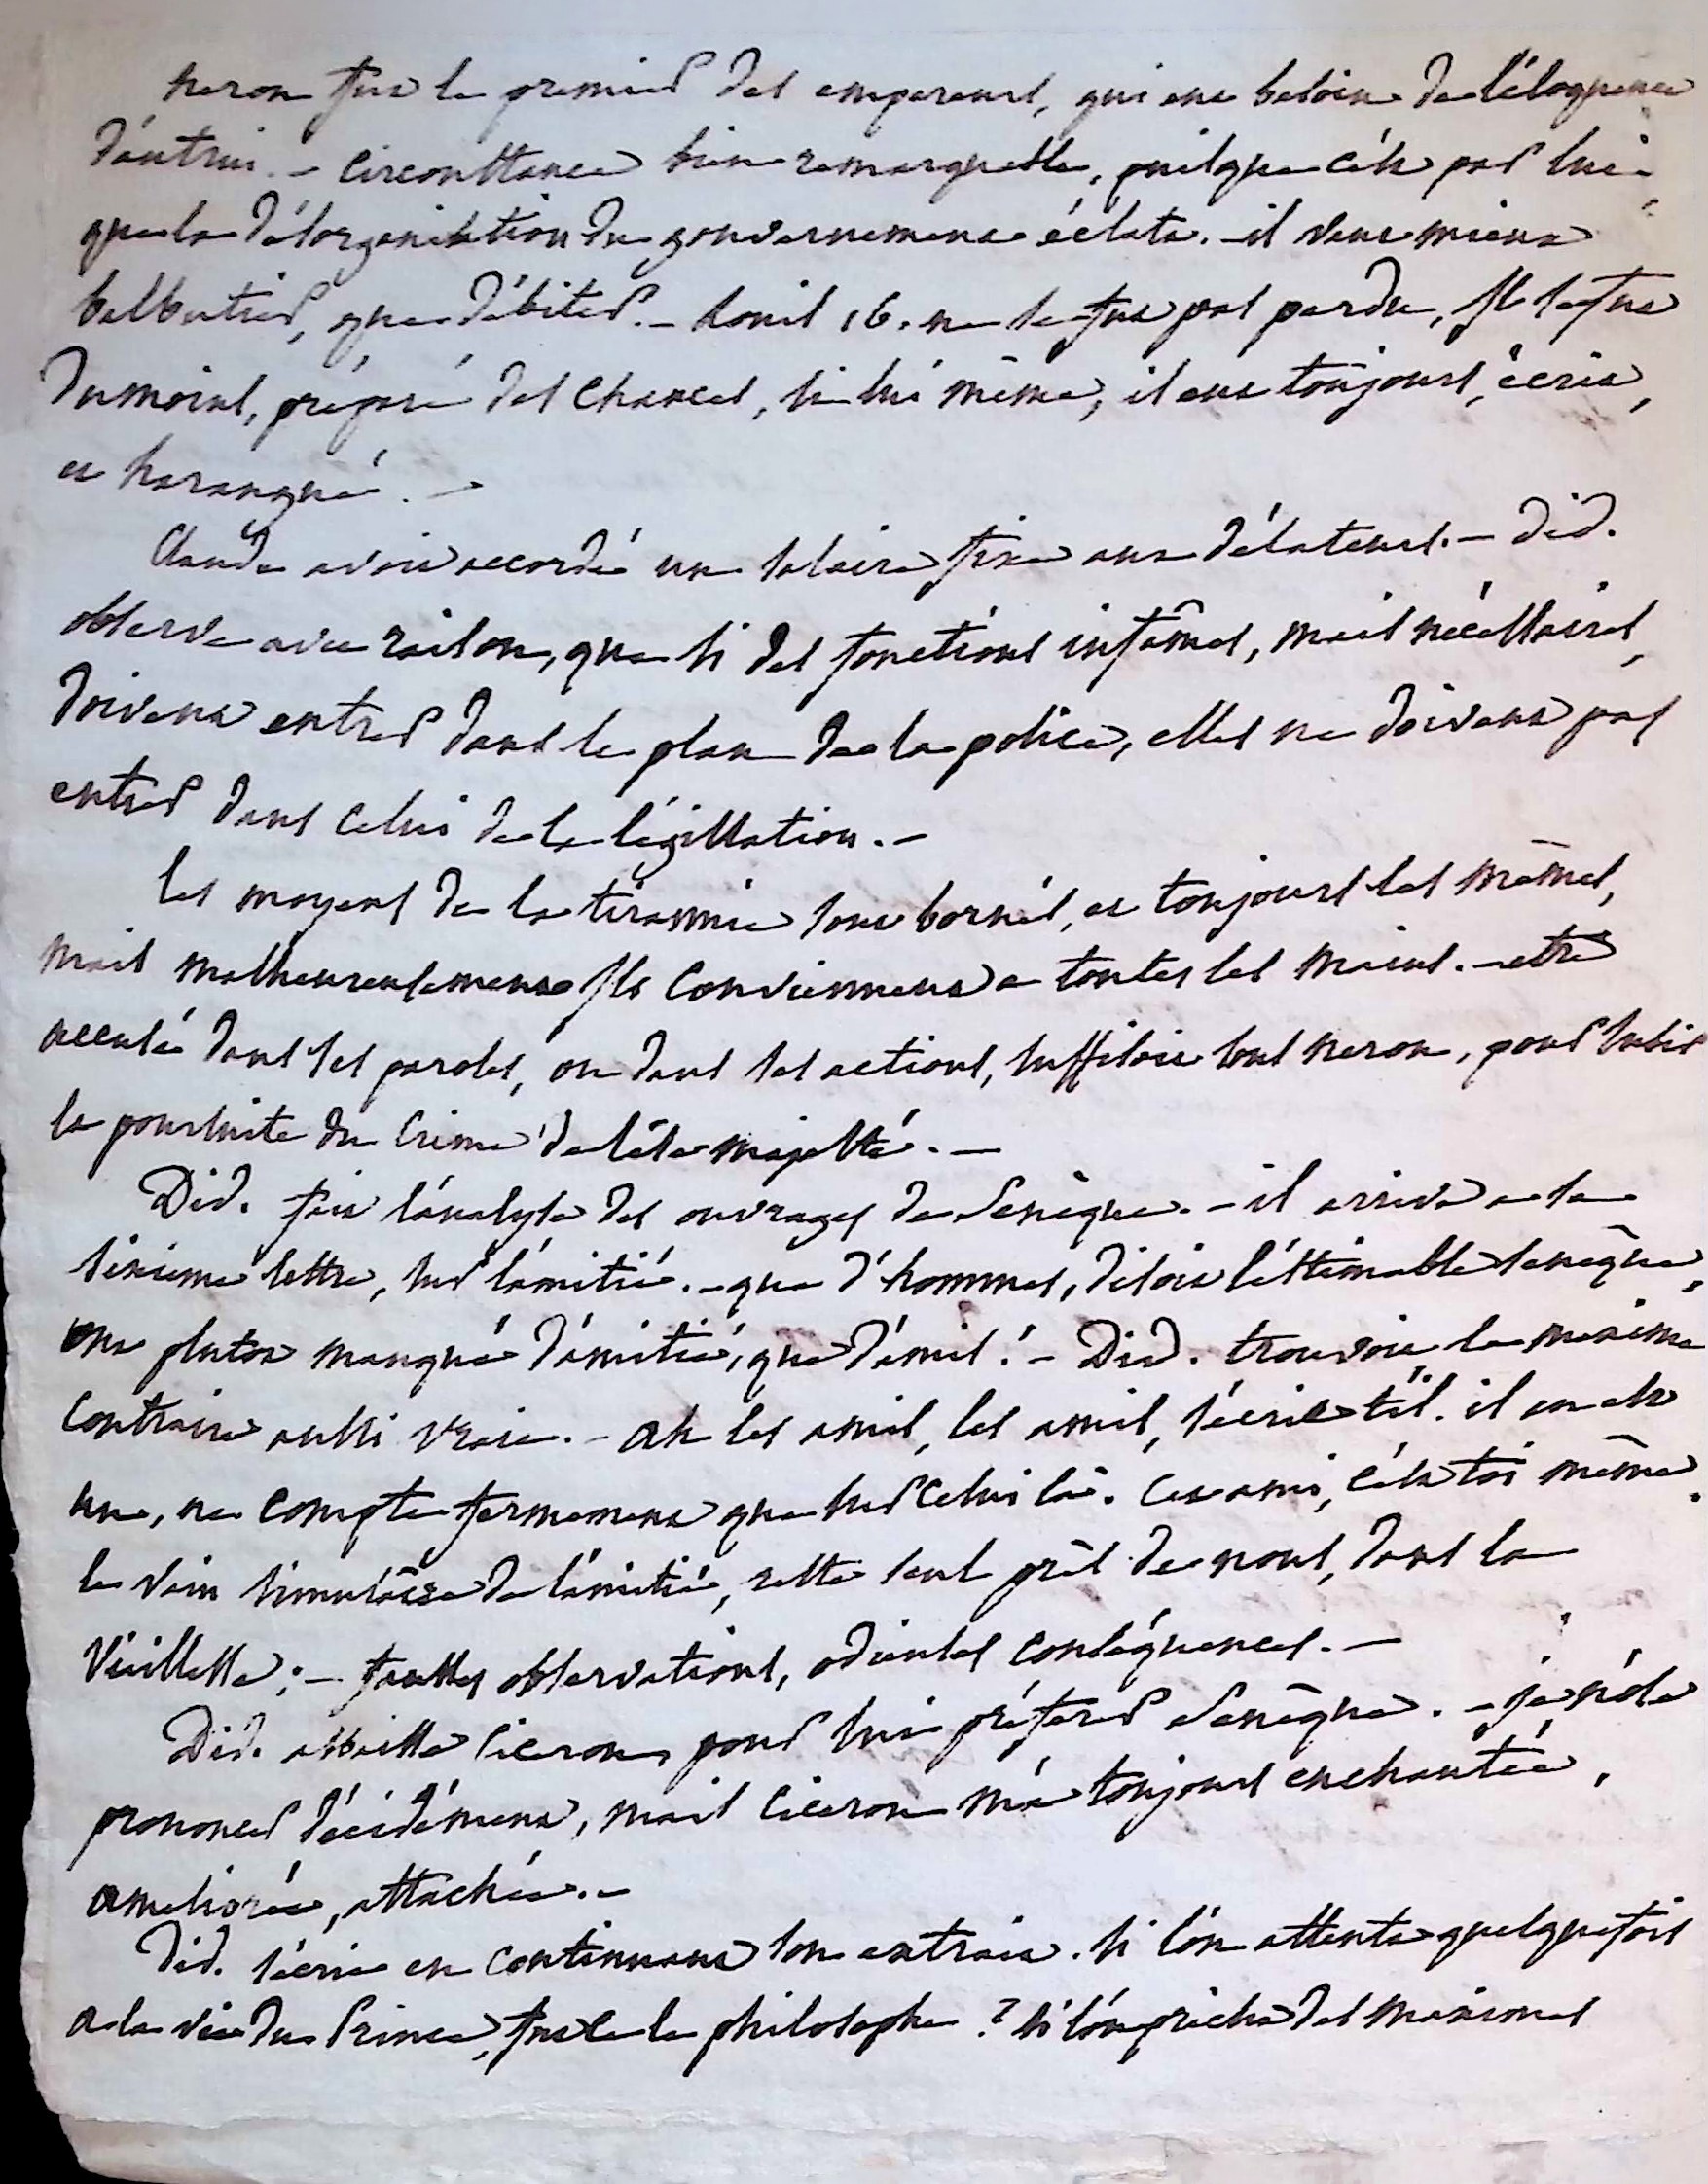 neron fut le premier des empereurs, qui eut besoin de l'éloquence
d'autrui. – circonstance bien remarquable, puisque c'est par lui
que la désorganisation du gouvernement éclata. – il vaut mieux
balbutier, que débiter. – Louis 16. ne se fut pas perdu, Il se fut
du moins, préparé des chances, si lui même, il eut toujours, écrit,
et harangué. –
Claude avoit accordé un salaire fixe aux délateurs. – Did.
observe avec raison, que si des fonctions infâmes, mais nécessaires,
doivent entrer dans le plan de la police, elles ne doivent pas
entrer dans celui de la législation. –
les moyens de la tirannie sont bornés, et toujours les mêmes,
mais malheureusement Ils conviennent a toutes les mains. – etre
accusé dans ses paroles, ou dans ses actions, suffisoit sous neron, pour subir
la poursuite du crime de lèse majesté. –
Did. fait l'analyse des ouvrages de Senèque. – il arrive a la
sixieme lettre, sur l'amitié. – que d'hommes, disoit l'estimable senèque,
ont plutot manqué d'amitié, que d'amis! – Did. trouvoit la maxime
contraire aussi vraie. – ah les amis, les amis, s'écrie t'il. il en est
un, ne compte fermement que sur celui là. cet ami, c'est toi même.
le vain simulacre de l'amitié, reste seul près de nous, dans la
vieillesse; – fausses observations, odieuses conséquences. –
Did. abaisse Ciceron, pour lui préférer Senèque. – je n'ose
prononcer décidément, mais Ciceron m'a toujours enchantée,
ameliorée, attachée. –
Did. s'écrie en continuant son extrait. si l'on attenta quelquefois
a la vie du Prince, fut ce le philosophe? si l'on prêcha des maximes